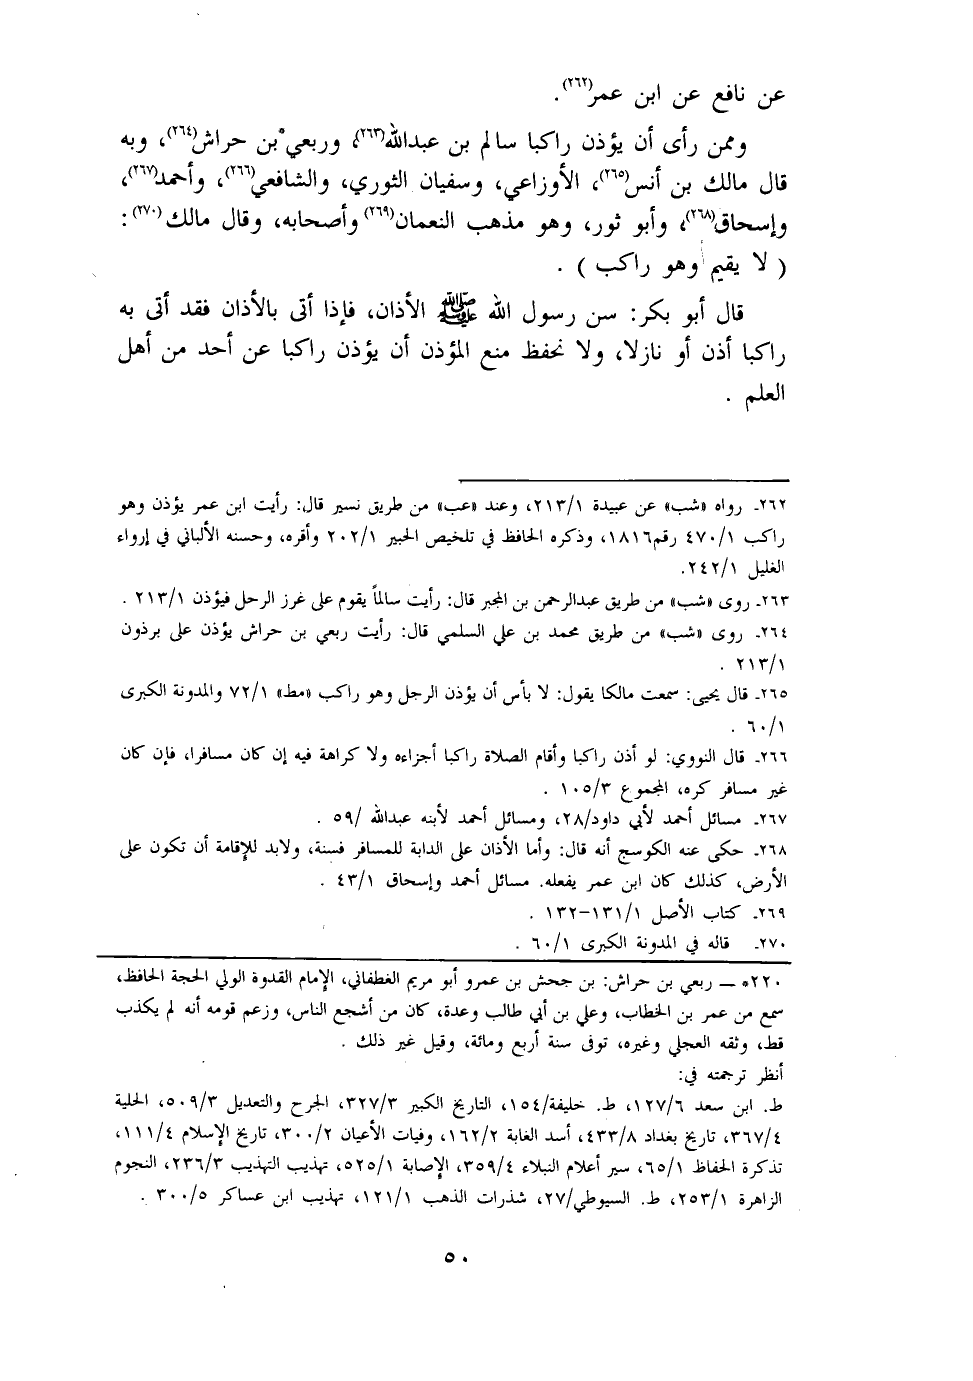 عن نافع عن ابن عمر(٢٦٢).
وممن رأى أن يؤذن راكبا سالم بن عبدالله(٢٦٣)، وربعي* بن حراش(٢٦٤)، وبه
قال مالك بن أنس(٢٦٥)، الأوزاعي، وسفيان الثوري، والشافعي(٢٦٦)، وأحمد(٢٦٧)،
وإسحاق(٢٦٨)، وأبو ثور، وهو مذهب النعمان(٢٦٩) وأصحابه، وقال مالك(٢٧٠):
( لا يقيم وهو راكب ) .
قال أبو بكر: سن رسول الله ﷺ الأذان، فإذا أتى بالأذان فقد أتى به
راكبا أذن أو نازلا، ولا نحفظ منع المؤذن أن يؤذن راكبا عن أحد من أهل
العلم .
٢٦٢ـ رواه «شب» عن عبيدة ٢١٣/١، وعند «عب» من طريق نسير قال: رأيت ابن عمر يؤذن وهو
راكب ٤٧٠/١ رقم١٨١٦، وذكره الحافظ في تلخيص الحبير ٢٠٢/١ وأقره، وحسنه الألباني في إرواء
الغليل ٢٤٢/١.
٢٦٣ـ روى «شب» من طريق عبدالرحمن بن المجبر قال: رأيت سالماً يقوم على غرز الرحل فيؤذن ٢١٣/١ .
٢٦٤ـ روى «شب» من طريق محمد بن علي السلمي قال: رأيت ربعي بن حراش يؤذن على برذون
٢١٣/١ .
٢٦٥ـ قال يحيى: سمعت مالكا يقول: لا بأس أن يؤذن الرجل وهو راكب «مط» ٧٢/١ والمدونة الكبرى
٦٠/١ .
٢٦٦ـ قال النووي: لو أذن راكبا وأقام الصلاة راكبا أجزاءه ولا كراهة فيه إن كان مسافرا، فإن كان
غير مسافر كره، المجموع ١٠٥/٣ .
٢٦٧ـ مسائل أحمد لأبي داود/٢٨، ومسائل أحمد لأبنه عبدالله /٥٩ .
٢٦٨ـ حكى عنه الكوسج أنه قال: وأما الأذان على الدابة للمسافر فسنة، ولابد للإقامة أن تكون على
الأرض، كذلك كان ابن عمر يفعله. مسائل أحمد وإسحاق ٤٣/١ .
٢٦٩ـ كتاب الأصل ١٣١/١–١٣٢ .
٢٧٠ـ قاله في المدونة الكبرى ٦٠/١ .
٢٢٠* — ربعي بن حراش: بن جحش بن عمرو أبو مريم الغطفاني، الإمام القدوة الولي الحجة الحافظ،
سمع من عمر بن الخطاب، وعلي بن أبي طالب وعدة، كان من أشجع الناس، وزعم قومه أنه لم يكذب
قط، وثقه العجلي وغيره، توفى سنة أربع ومائة، وقيل غير ذلك .
أنظر ترجمته في:
ط. ابن سعد ١٢٧/٦، ط. خليفة/١٥٤، التاريخ الكبير ٣٢٧/٣، الجرح والتعديل ٥٠٩/٣، الحلية
٣٦٧/٤، تاريخ بغداد ٤٣٣/٨، أسد الغابة ١٦٢/٢، وفيات الأعيان ٣٠٠/٢، تاريخ الإسلام ١١١/٤،
تذكرة الحفاظ ٦٥/١، سير أعلام النبلاء ٣٥٩/٤، الإصابة ٥٢٥/١، تهذيب التهذيب ٢٣٦/٣، النجوم
الزاهرة ٢٥٣/١، ط. السيوطي/٢٧، شذرات الذهب ١٢١/١، تهذيب ابن عساكر ٣٠٠/٥ .
٥٠